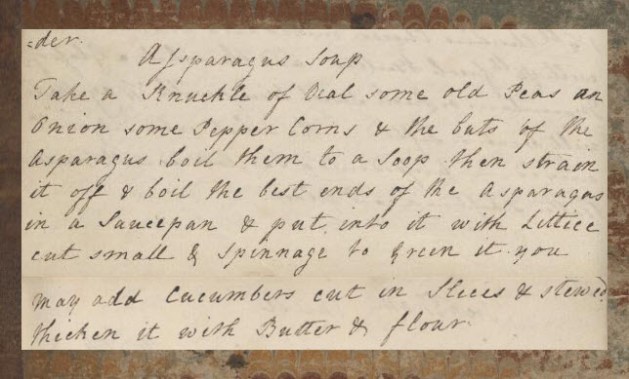 =der.
Asparagus Soup
Take a Knuckle of Veal some old Peas an
Onion some Pepper Corns & the buts of the
Asparagus boil them to a Soop then strain
it off & boil the best ends of the Asparagus
in a Saucepan & put into it with Lettice
cut small & Spinnage to green it you
may add Cucumbers cut in Slices & stewed
thicken it with Butter & flour